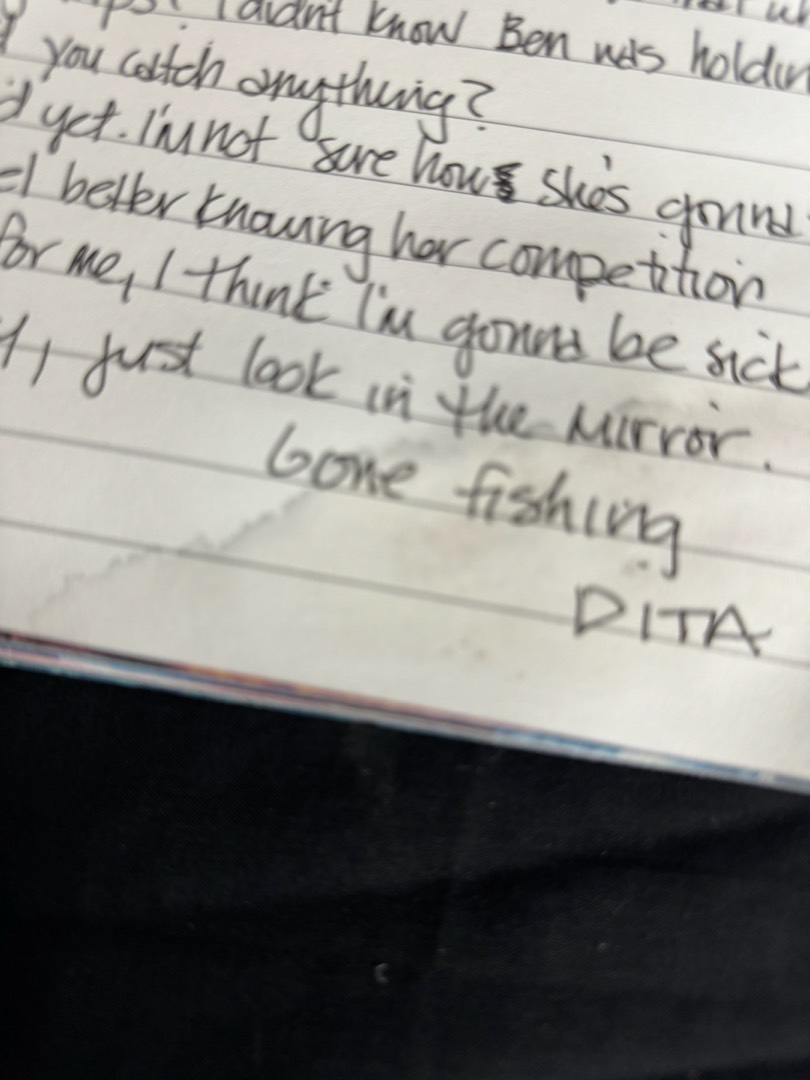 I didn't know Ben was
you catch anything?
yet. I'm not sure how she's gonna
better knowing her competition
for me, I think I'm gonna be sick
just look in the mirror.
Gone fishing
DITA